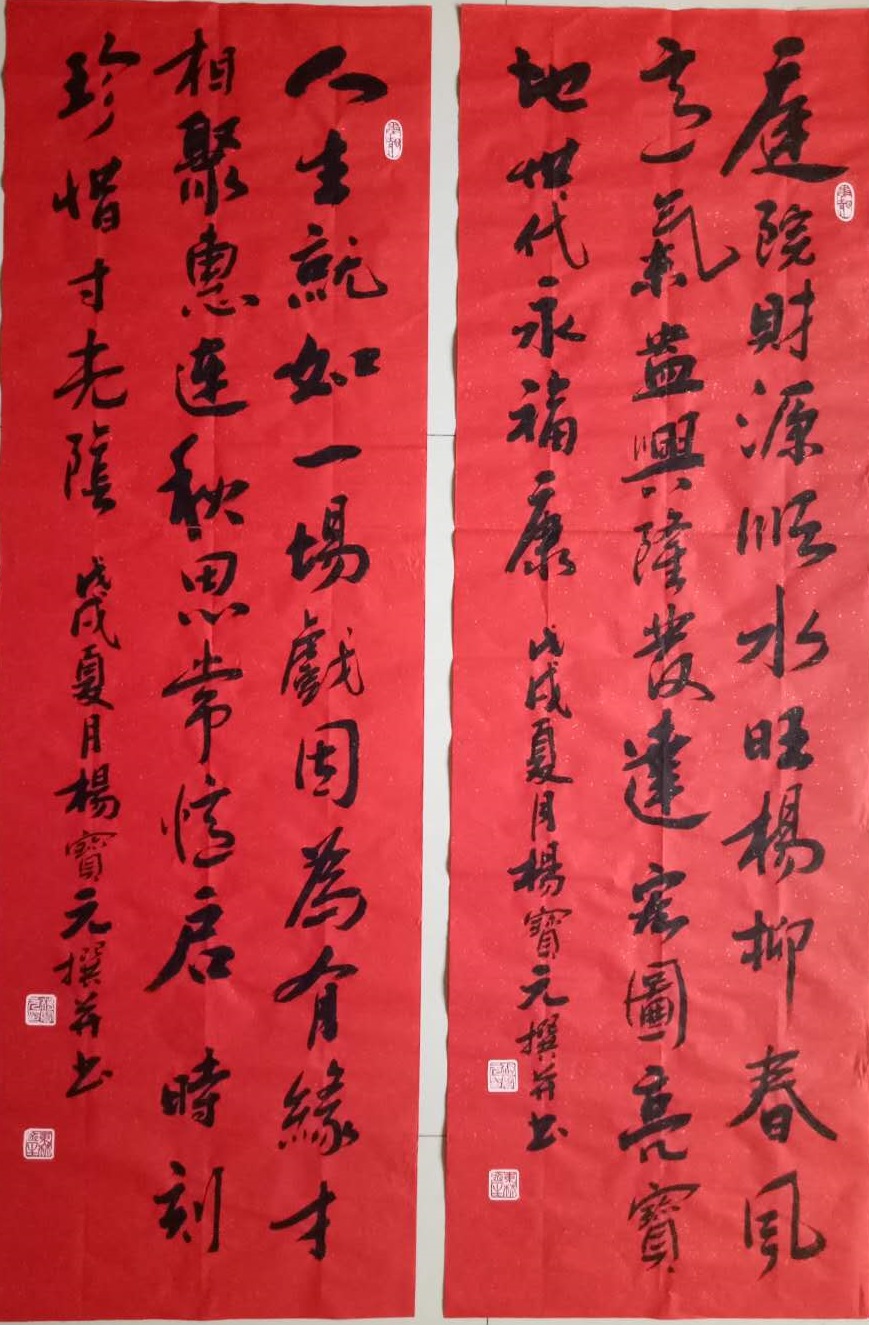 庭院財源順水旺楊柳春風
氣益興隆發達宏圖亮寶
地世代永福康
戊戌夏月楊寶元撰并书
人生就如一場戲因為有緣才
相聚惠連秋思常憶 時刻
珍惜寸光陰
戊戌夏月楊寶元撰并书